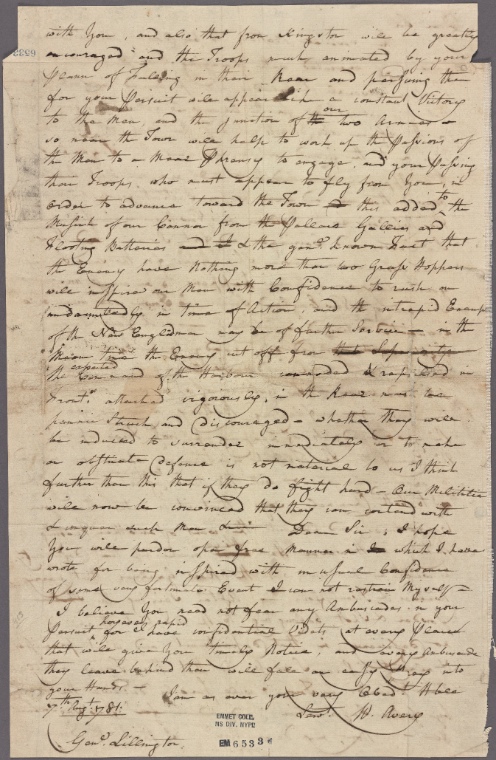 with You, and also that from Kingston will be greatly
encouraged and the Troops much animated by your
Plann of Falling in their Rear and pursuing them
for your Pursuit will appear like a constant Victory
to the Men, and the junction of the our two Armies
so near the Town will help to work up the Passions of
the Men to a Phrensy to engage, and your Passing
those Troops, who must appear to fly from You, in
order to advance toward the Town this added to the
Musick of our Cannon from the Gallies &
Floating Batteries & the gen.l known Fact that
the Enemy have Nothing more than two Grass Hoppers
will inspire our Men with Confidence to rush on
undauntedly in time of Action, and the intrepid Example
of the New Englandmen may be of further Service in the
the Enemy cut off from
the expected Command of the Harbour surrounded &
Front attacked vigorously, in the Rear must be
pannic Struck and discouraged - whether they will
be induced to surrender immediately or to make
an obstinate defence is not material to us I think
further than this that if they do fight hard - Our Militia
will now be convinced that they can contend with
& conquer such Men Dear Sir, I hope
You will pardon open free manner in which I have
wrote for being inspired with an usual Confidence
of some very fortunate Event I can not restrain Myself
I believe You need not fear any Ambuscades in your
Pursuit however rapid for I have confidential at every Place
that will give You timely Notice, and every Ambuscade
they leave behind them will fall an easy Prey into
your Hands - I am as ever your very Obed.t Hble
7th Aug.t 1781 Serv.t W. Avery
Gen.l Lillington
EMMET COLL.
MS DIV. NYPL
EM 6533
6533